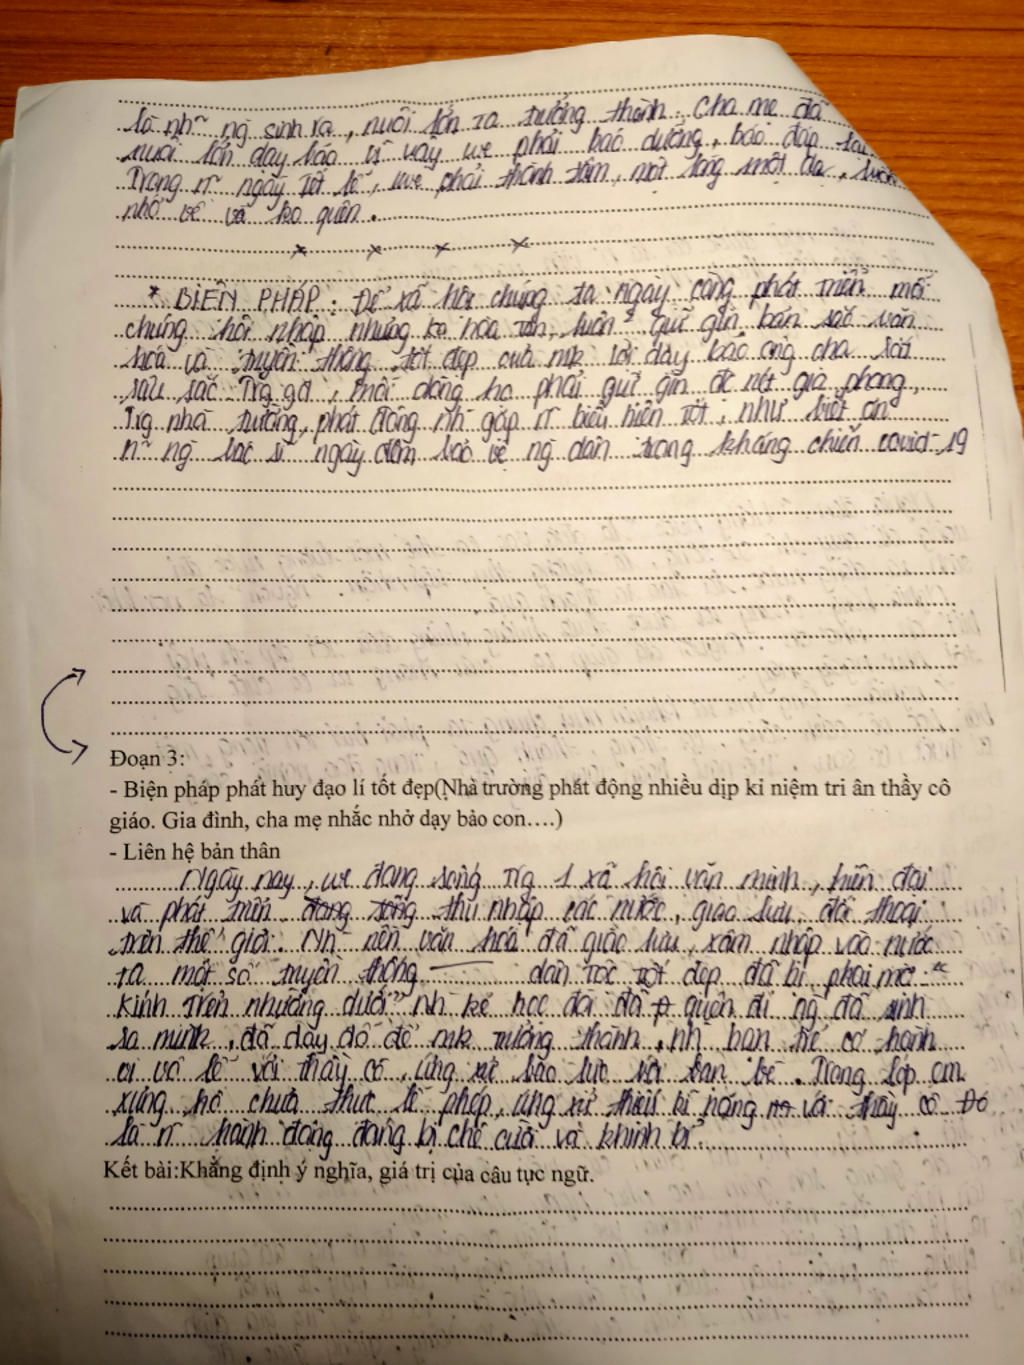 là nh~ ng sinh ra, nuôi lớn ra trưởng thành. Cha mẹ đã
nuôi lớn dạy bảo vì vậy we phải báo dưỡng, báo đáp
Trong n~ ngày tết lễ, we phải thành tâm, một lòng một dạ, luôn
nhớ về và ko quên.
x x x x
* BIỆN PHÁP: Để xã hội chúng ta ngày càng phát triển mỗi
chúng hội nhập nhưng ko hòa tan, luôn² giữ gìn bản sắc văn
hoá và truyền thống tốt đẹp của mk lời dạy bảo ông cha
sâu sắc. Trg gđ, mỗi dòng họ phải giữ gìn đc nét gia phong,
Trg nhà trường, phát động nh gặp n~ biểu hiện tốt, như biết ơn
n~ ng bác sĩ ngày đêm bảo vệ ng dân trong kháng chiến covid-19
Đoạn 3:
- Biện pháp phát huy đạo lí tốt đẹp(Nhà trường phát động nhiều dịp kỉ niệm tri ân thầy cô
giáo. Gia đình, cha mẹ nhắc nhở dạy bảo con….)
- Liên hệ bản thân
Ngày nay, we đang sống trg 1 xã hội văn minh, hiện đại
và phát triển thu nhập các nước, giao lưu, đối thoại
trên thế giới. Nh nền văn hoá đã giao lưu, xâm nhập vào nước
ta một số truyền thống dân tộc tốt đẹp đã bị phai mờ: "
Kính trên nhường dưới" nh kẻ học đòi đã quên đi ng đã sinh
ra mình, đã dạy dỗ để mk trưởng thành, nh bạn trẻ có hành
vi vô lễ với thầy cô, ứng xử bạo lực với bạn bè. Trong lớp em
xưng hô chưa thực lễ phép, ứng xử thiếu kĩ năng với thầy cô Đó
là n~ hành động đáng bị chê cười và khinh bỉ.
Kết bài:Khẳng định ý nghĩa, giá trị của câu tục ngữ.